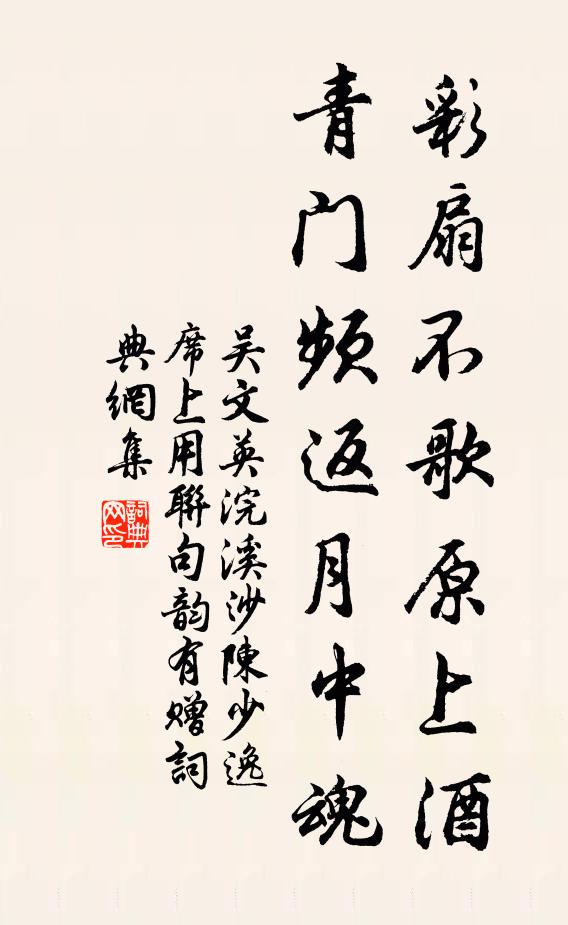 彩扇不歌原上酒
青门频返月中魂
吴文英浣溪沙陳少逸
席上用聯句韵有赠詞
典網集
詞典网印